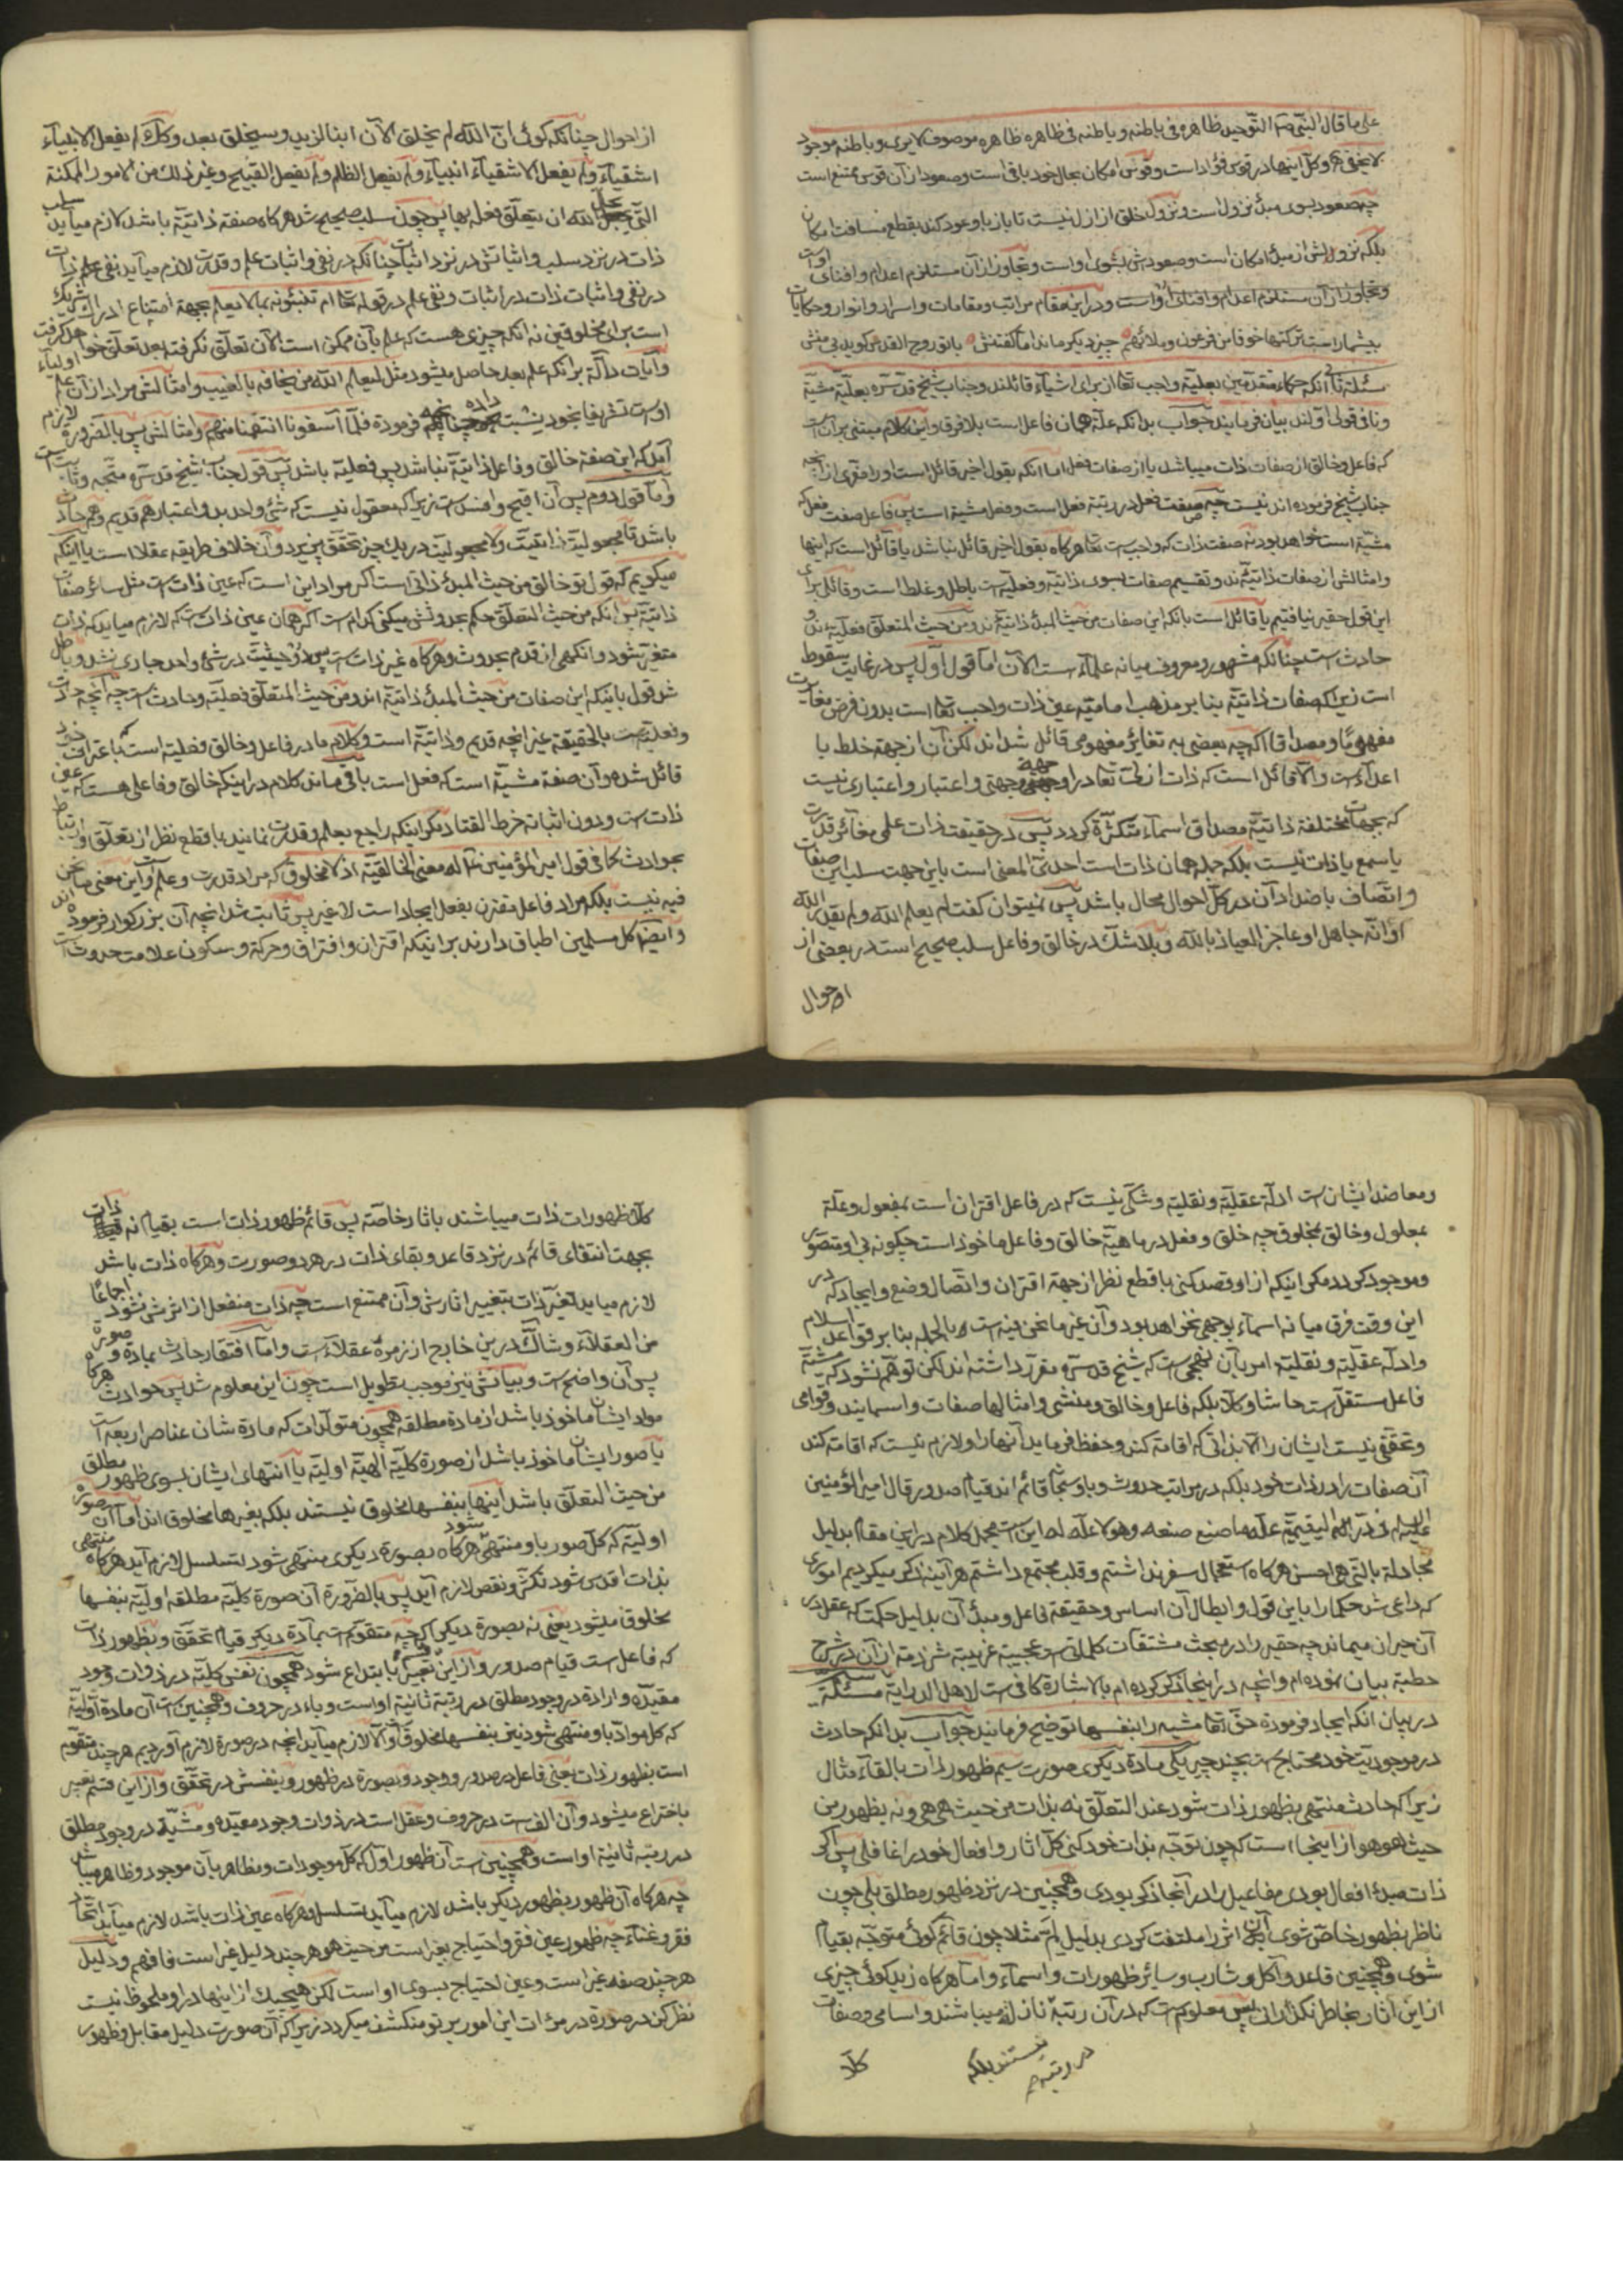 علی ما قال النبی صه التوحید ظاهره فی باطنه و باطنه فی ظاهره ظاهره موصوف لا یری و باطنه موجود
لا یخفی و کل اینها در قوس فؤاد است و قوس امکان بحال خود باقی است و صعود از آن قوس ممتنع است
چه صعود بسوی مبدء نزول است و نزول خلق از ازل نیست تا باز باو عود کند بقطع مسافت امکان
بلکه نزولش از مبدء امکان است و صعودش بسوی او است و تجاوز از آن مستلزم اعدام و افنای اوست
و تجاوز از آن مستلزم اعدام و افنای او است و در این مقام مراتب و مقامات و اسرار و انوار و حکایات
بیشمار است ترکتها خوفا من فرعون و ملائهم چیز دیگر ماند اما گفتنش با تو روح القدس گوید بی منش
مسئلة ثانی آنکه حکماء متقدمین بعلیة واجب تعا از برای اشیآء قائلند و جناب شیخ قدس سره بعلیة مشیة
و نافی قول اولند بیان فرمایند جواب بدانکه علة همان فاعل است بلا فرق و این کلام مبتنی بر آن است
که فاعل و خالق از صفات ذات میباشد یا از صفات فعل اما آنکه بقول اخیر قائل است او را مفری از آنچه
جناب شیخ فرموده اند نیست چه صفت فعل در رتبة فعل است و فعل مشیة است پس فاعل صفت فعل که
مشیة است خواهد بود نه صفت ذات که واجب است تعا هرکاه بقول اخیر قائل نباشد یا قائل است که اینها
و امثالش از صفات ذاتیه اند و تقسیم صفات بسوی ذاتیه و فعلیه است باطل و غلط است و قائلی برای
این قول حقیر نیافتیم یا قائل است بانکه این صفات من حیث المبدء ذاتیه اند و من حیث المتعلق فعلیه اند و
حادث است چنانکه مشهور و معروف میانه علمآء است الآن اما قول اول پس در غایت سقوط
است زیراکه صفات ذاتیة بنا بر مذهب امامیة عین ذات واجب تعا است بدون فرض مغایرت
مفهوما و مصداقا اکرچه بعضی به تغایر مفهومی قائل شده اند لکن آن از جهة خلط با
اعدآء است والا قائل است که ذات ازلیت تعا در او جهتی و جهتی و اعتبار و اعتباری نیست
که بجهات مختلفة ذاتیة مصداق اسمآء متکثرة کردد پس در حقیقت ذات علمی مغائر قدرت
یا سمع یا ذات نیست بلکه جمله همان ذات است احدی المعنی است باین جهت سلب این صفات
و اتصاف باضداد آن در کل احوال محال باشد پس نمیتوان کفت لم یعلم الله و لم یقدر الله
او انه جاهل او عاجز العیاذ بالله و بلا شک در خالق و فاعل سلب صحیح است در بعضی از
احوال
از احوال چنانکه کوئی ان الله لم یخلق الآن ابنا لزید و سیخلق بعد و کذلک لم یفعل الانبیآء
اشقیآء و لم یفعل الاشقیآء انبیآء و لم یفعل الظلم و لم یفعل القبیح و غیر ذلک من الامور الممکنة
التی یجل الله ان یتعلق فعله بها پس چون سلب صحیح شد هرکاه صفة ذاتیة باشد لازم میآید سلب
ذات در نزد سلب و اثباتش در نزد اثبات چنانکه در نفی و اثبات علم و قدرت لازم میآید نفی ذات
در نفی و اثبات ذات در اثبات و نفی علم در قوله تعا ام تنبئونه بما لا یعلم بجهة امتناع ادراک شریک
است برای مخلوقین نه انکه چیزی هست که علم بآن ممکن است الآن تعلق نکرفته بعد تعلق خواهد کرفت
و آیات دالة بر انکه علم بعد حاصل میشود مثل لیعلم الله من یخافه بالغیب و امثالش مراد از آن علم اولیآء
اوست تشریفا بخود نسبت داده چنانچه فرموده فلما آسفونا انتقمنا منهم و امثالش پس بالضروره لازم
آمد که این صفة خالق و فاعل ذاتیة نباشد پس فعلیة باشد پس قول جناب شیخ قدس سره متجه و ثابت است
و اما قول دوم پس آن اقبح و افسد است زیراکه معقول نیست که شئ واحد بدو اعتبار هم قدیم و هم حادث
باشد تا مجعولیة ذاتیت و لا مجعولیت در یک چیز تحقق پذیرد و آن خلاف طریقه عقلا است یا اینکه
میکویم که قول تو خالق من حیث المبدء ذاتی است اکر مراد این است که عین ذات است مثل سائر صفات
ذاتیة پس انکه من حیث المتعلق حکم بحدوثش میکنی کدام است اکر همان عین ذات است که لازم میاید که ذات
متغیر شود و انکهی از قدم بحدوث و هرکاه غیر ذات است پس دو حیثیت در شئ واحد جاری نشد و باطل
شد قول باینکه این صفات من حیث المبدء ذاتیة اند و من حیث المتعلق فعلیة و حادث است چه آنچه حادث
و فعلیة است بالحقیقة غیر انچه قدیم و ذاتیة است و کلام ما در فاعل و خالق فعلیة است که باعتراف خود
قائل شده و آن صفة مشیة است که فعل است باقی ماند کلام در اینکه خالق و فاعلی هست که عین
ذات است و دون اثباته خرط القتاد مکر اینکه راجع بعلم و قدرت نمایند با قطع نظر از تعلق و ارتباط
بحوادث کما فی قول امیر المؤمنین ع له معنی الخالقیة اذ لا مخلوق که مراد قدرت و علم است و این معنی ما نحن
فیه نیست بلکه مراد فاعل مقترن بفعل ایجاد است لا غیر پس ثابت شد انچه آن بزرکوار فرموده اند
و ایضا کل مسلمین اطباق دارند بر اینکه اقتران و افتراق و حرکة و سکون علامت حدوث است
و معاضد ایشان است ادلة عقلیة و نقلیة و شکی نیست که در فاعل اقتران است بمفعول و علة
بمعلول و خالق بمخلوق چه خلق و فعل در ماهیة خالق و فاعل ماخوذ است چکونه بی او متصور
و موجود کردد مکر اینکه از او قصد کنی با قطع نظر از جهة اقتران و اتصال وضع و ایجاد که در
این وقت فرق میانه اسمآء بوجهی نخواهد بود و آن غیر ما نحن فیه است و بالجمله بنا بر قواعد اسلام
و ادلة عقلیة و نقلیة امر بآن نهجی است که شیخ قدس سره مقرر داشته اند لکن توهم نشود که مشیة
فاعل مستقل است حاشا و کلا بلکه فاعل و خالق و منشی و امثالها صفات و اسمایند و قوامی
و تحققی نیست ایشان را الا بذاتی که اقامه کند و حفظ فرماید آنها را و لازم نیست که اقامه کند
آن صفات را در ذات خود بلکه در مراتب حدوث و باو سبحانه قائم اند قیام صدور قال امیر المؤمنین
علیه السلام فی الدرة الیتیمیة علة ما صنع صنعه و هو لا علة له این است مجمل کلام در این مقام بدلیل
مجادلة بالتی هی احسن هرکاه استعجال سفر نداشتم و قلب مجتمع داشتم هر آینه ذکر میکردیم اموری
که داعی شد حکما را باین قول و ابطال آن اساس و حقیقة فاعل و مبدء آن بدلیل حکمت که عقل در
آن حیران میماند چه حقیر را در مبحث مشتقات کلماتی است عجیبة غریبة شرذمة از آن در شرح
خطبة بیان نموده ام و انچه در اینجا ذکر کرده ام بالاشارة کافی است لاهل الدرایة مسئلة
در بیان انکه ایجاد فرموده حق تعا مشیه را بنفسها توضیح فرمایند جواب بدانکه حادث
در موجودیت خود محتاج است بچند چیز یکی مادة دیکری صورت سیم ظهور ذات بالقآء مثال
زیراکه حادث منتهی بظهور ذات شود عند التعلق نه بذات من حیث هی هی و نه بظهور من
حیث هو هو از اینجا است که چون توجه بذات خود کنی کل اثار و افعال خود را غافلی پس اکر
ذات مبدء افعال بودی مفاعیل را در آنجا ذکری بودی و همچنین در نزد ظهور مطلق بلی چون
ناظر بظهور خاص شوی آن اثر را ملتفت کردی بدلیل لم مثلا چون قائم کوئی متوجه بقیام
شوی و همچنین قاعد و آکل و شارب و سایر ظهورات و اسمآء و اما هرکاه زید کوئی چیزی
از این آثار بخاطر نکذرانی پس معلوم است که در آن رتبة نازله میباشند و اسامی و صفات
در رتبة نیستند بلکه
کلا
کلا ظهورات ذات میباشند باثار خاصة پس قائم ظهور ذات است بقیام نه ذات
بجهت انتفای قائم در نزد قاعد و بقاء ذات در هر دو صورت و هرکاه ذات باشد
لازم میاید تغیر ذات بتغییر اثارش و آن ممتنع است چه ذات منفعل از اثرش نشود اجماعا
من العقلآء و شاک در این خارج از زمرة عقلآء است و اما افتقار حادث بمادة و صورة
پس آن واضح است و بیانش نیز موجب تطویل است چون این معلوم شد پس حوادث هرکاه
مواد ایشان ماخوذ باشد از مادة مطلقه همچون متولدات که مادة شان عناصر اربعه است
یا صور ایشان ماخوذ باشد از صورة کلیة الهیة اولیة یا انتهای ایشان بسوی ظهور مطلق
من حیث التعلق باشد اینها بنفسها مخلوق نیستند بلکه بغیرها مخلوق اند اما آن صورة
اولیة که کل صور باو منتهی شود هرکاه بصورة دیکری منتهی شود تسلسل لازم آید هرکاه منتهی
بذات اقدس شود تکثر و نقص لازم آید پس بالضرورة آن صورة کلیة مطلقه اولیة بنفسها
مخلوق میشود یعنی نه بصورة دیکری اکرچه متقوم است بمادة دیکر قیام تحقق و بظهور ذات
که فاعل است قیام صدور و از این تعبیر بابتداع شود همچون نفس کلیة در ذوات وجود
مقیده و ارادة در وجود مطلق در رتبة ثانیة او است و باء در حروف و همچنین است آن مادة اولیة
که کل مواد باو منتهی شود نیز بنفسها مخلوق والا لازم میآید انچه در صورة لازم آوردیم هرچند متقومه
است بظهور ذات یعنی فاعل در صدور و وجود و بصورة در ظهور و بنفسش در تحقق و از این قسم تعبیر
باختراع میشود و آن الف است در حروف و عقل است در ذوات وجود مقیده و مشیة در وجود مطلق
در رتبة ثانیة او است و همچنین است آن ظهور اول که کل موجودات و مظاهر بآن موجود و ظاهر میباشد
چه هرکاه آن ظهور بظهور دیکر باشد لازم میآید تسلسل و هرکاه عین ذات باشد لازم میآید اتحاد
فقر و غنآء چه ظهور عین فقر و احتیاج بغیر است من حیث هو هرچند دلیل غیر است فافهم و دلیل
هرچند صفة غیر است و عین احتیاج بسوی او است لکن هیچیک از اینها در او ملحوظ نیست
نظر کن در صورة در مرءات این امور بر تو منکشف میکردد زیراکه آن صورت دلیل مقابل و ظهور